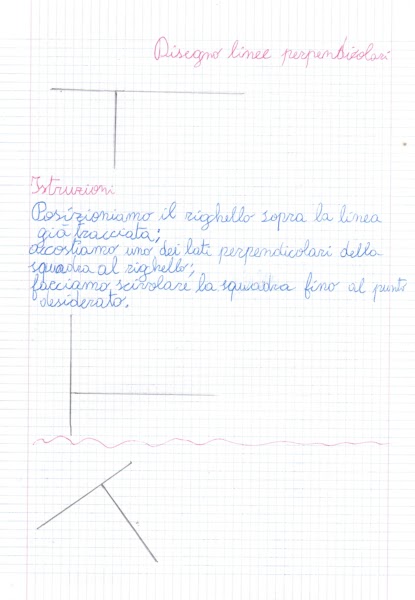 Disegno linee perpendicolari
Istruzioni
Posizioniamo il righello sopra la linea
già tracciata;
accostiamo uno dei lati perpendicolari della
squadra al righello;
facciamo scivolare la squadra fino al punto
desiderato.